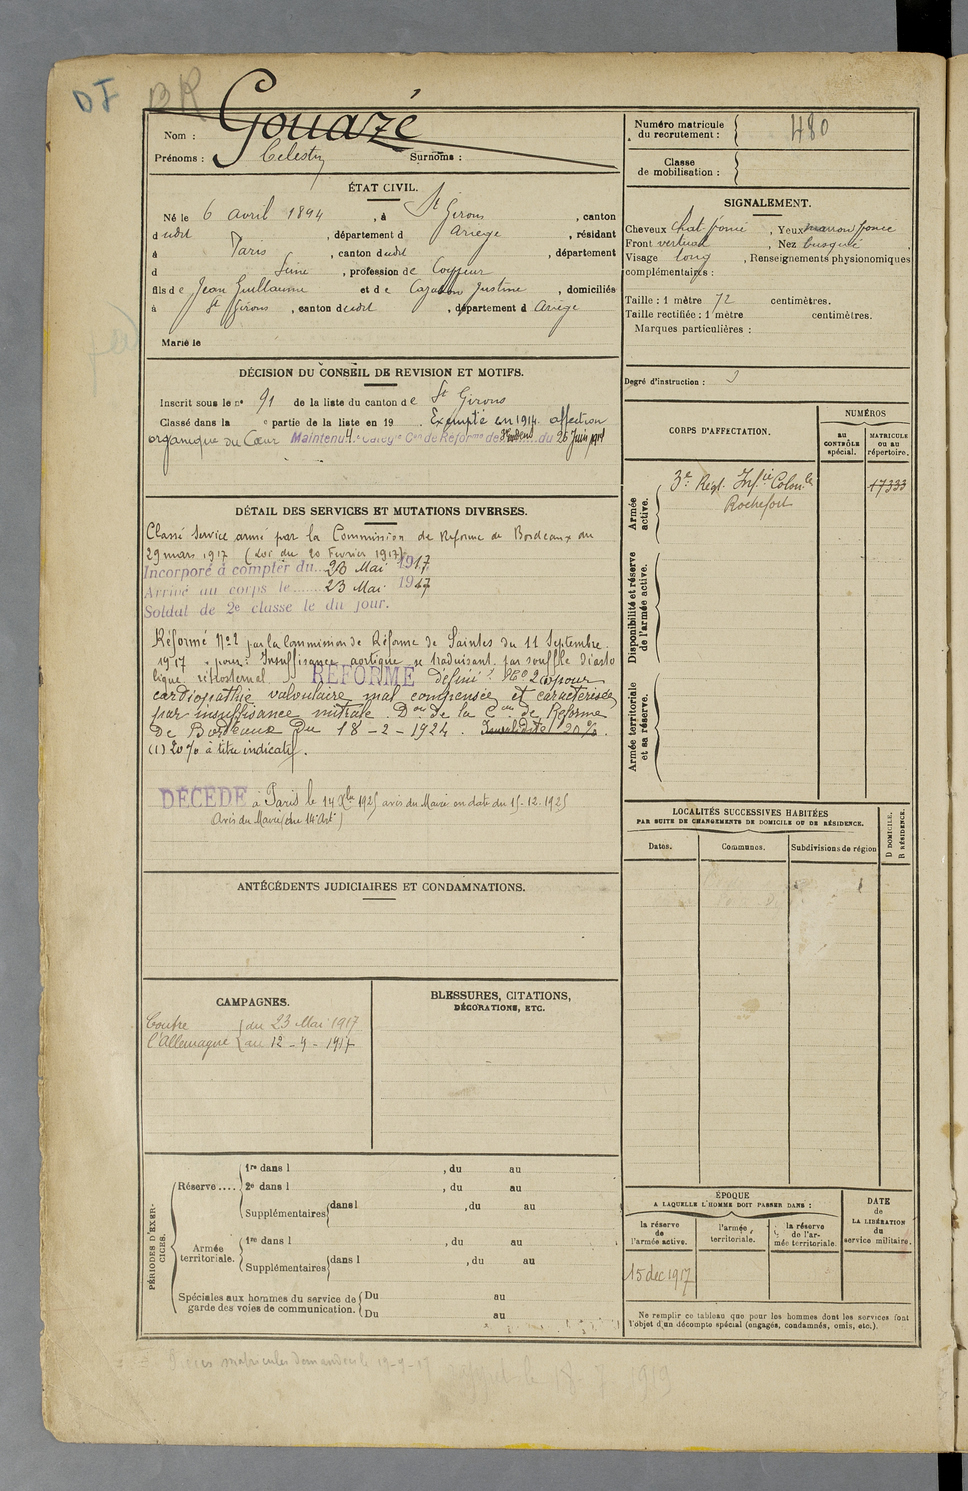 DJ BR
Nom : Gouazé
Prénoms : Celestin Surnoms :
ÉTAT CIVIL.
Né le 6 avril 1894, à St Girons, canton
d udit, département d Ariege, résidant
à Paris, canton dudit, département
d Seine, profession de Coiffeur
fils de Jean Guillaume et de Justine, domiciliés
à St Girons, canton dudit, département d Ariège
Marié le
DÉCISION DU CONSEIL DE REVISION ET MOTIFS.
Inscrit sous le n° 91 de la liste du canton de St Girons
Classé dans la e partie de la liste en 19 . Exempté en 1914. affection
organique du Cœur Maintenu du 26 Juin
DÉTAIL DES SERVICES ET MUTATIONS DIVERSES.
Classé Service armé par la Commission de Réforme de Bordeaux du
29 mars 1917 (Loi du 20 Fevrier 1917).
Incorporé à compter du 23 Mai 1917
Arrivé au corps le 23 Mai 1917
Soldat de 2e classe le du jour.
Réformé N°2 par la Commission de Réforme de Saintes du 11 Septembre
1917 pour : Insuffisance aortique se traduisant par souffle diasto
lique rétrosternal RÉFORMÉ définif N° 2 pour
cardiopathie valvulaire mal compensée et caractérisée
par insuffisance mitrale. Don de la Con de Reforme
de Bordeaux du 18-2-1924. Invalidité 20%.
(1) 20% à titre indicatif.
DÉCÉDÉ à Paris le 14 Xbre 1925 avis du Maire en date du 15-12-1925
Avis du Maire du 14e Art)
ANTÉCÉDENTS JUDICIAIRES ET CONDAMNATIONS.
CAMPAGNES.
Contre du 23 Mai 1917
l'Allemagne au 12-9-1917
BLESSURES, CITATIONS,
DÉCORATIONS, ETC.
PÉRIODES D'EXERCICES.
Réserve....
1re dans l , du au
2e dans l , du au
Supplémentaires dans l , du au
Armée territoriale.
1re dans l , du au
Supplémentaires dans l , du au
Spéciales aux hommes du service de Du au
garde des voies de communication. Du au
Numéro matricule
du recrutement : 480
Classe
de mobilisation :
SIGNALEMENT.
Cheveux chat. foncé, Yeux marron foncé
Front vertical, Nez busqué,
Visage long, Renseignements physionomiques
complémentaires :
Taille : 1 mètre 72 centimètres.
Taille rectifiée : 1 mètre centimètres.
Marques particulières :
Degré d'instruction : 3
CORPS D'AFFECTATION.
NUMÉROS
au CONTRÔLE spécial.
MATRICULE ou au répertoire.
Armée active.
3e Régt Infie Colonle
Rochefort
17333
Disponibilité et réserve de l'armée active.
Armée territoriale et sa réserve.
LOCALITÉS SUCCESSIVES HABITÉES
PAR SUITE DE CHANGEMENTS DE DOMICILE OU DE RÉSIDENCE.
Dates. Communes. Subdivisions de région
D DOMICILE. R RÉSIDENCE.
ÉPOQUE
A LAQUELLE L'HOMME DOIT PASSER DANS :
la réserve de l'armée active.
l'armée territoriale.
la réserve de l'armée territoriale.
DATE de LA LIBÉRATION du service militaire.
15 dec 1917
Ne remplir ce tableau que pour les hommes dont les services font
l'objet d'un décompte spécial (engagés, condamnés, omis, etc.).
matricules demandées le 19-9-17
le 18-7-1919